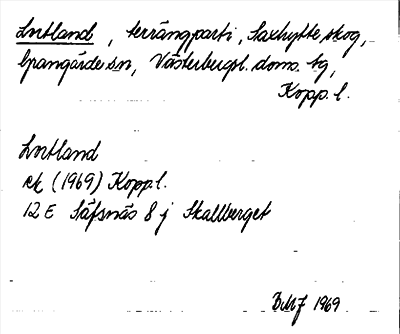 Lortland, terrängparti, Saxhytte skog,
Grangärde sn, Västerbergsl. doms. tg,
Kopp. l.
Lortland
ek (1969) Kopp.l.
12 E Säfsnäs 8 j Skallberget
1969